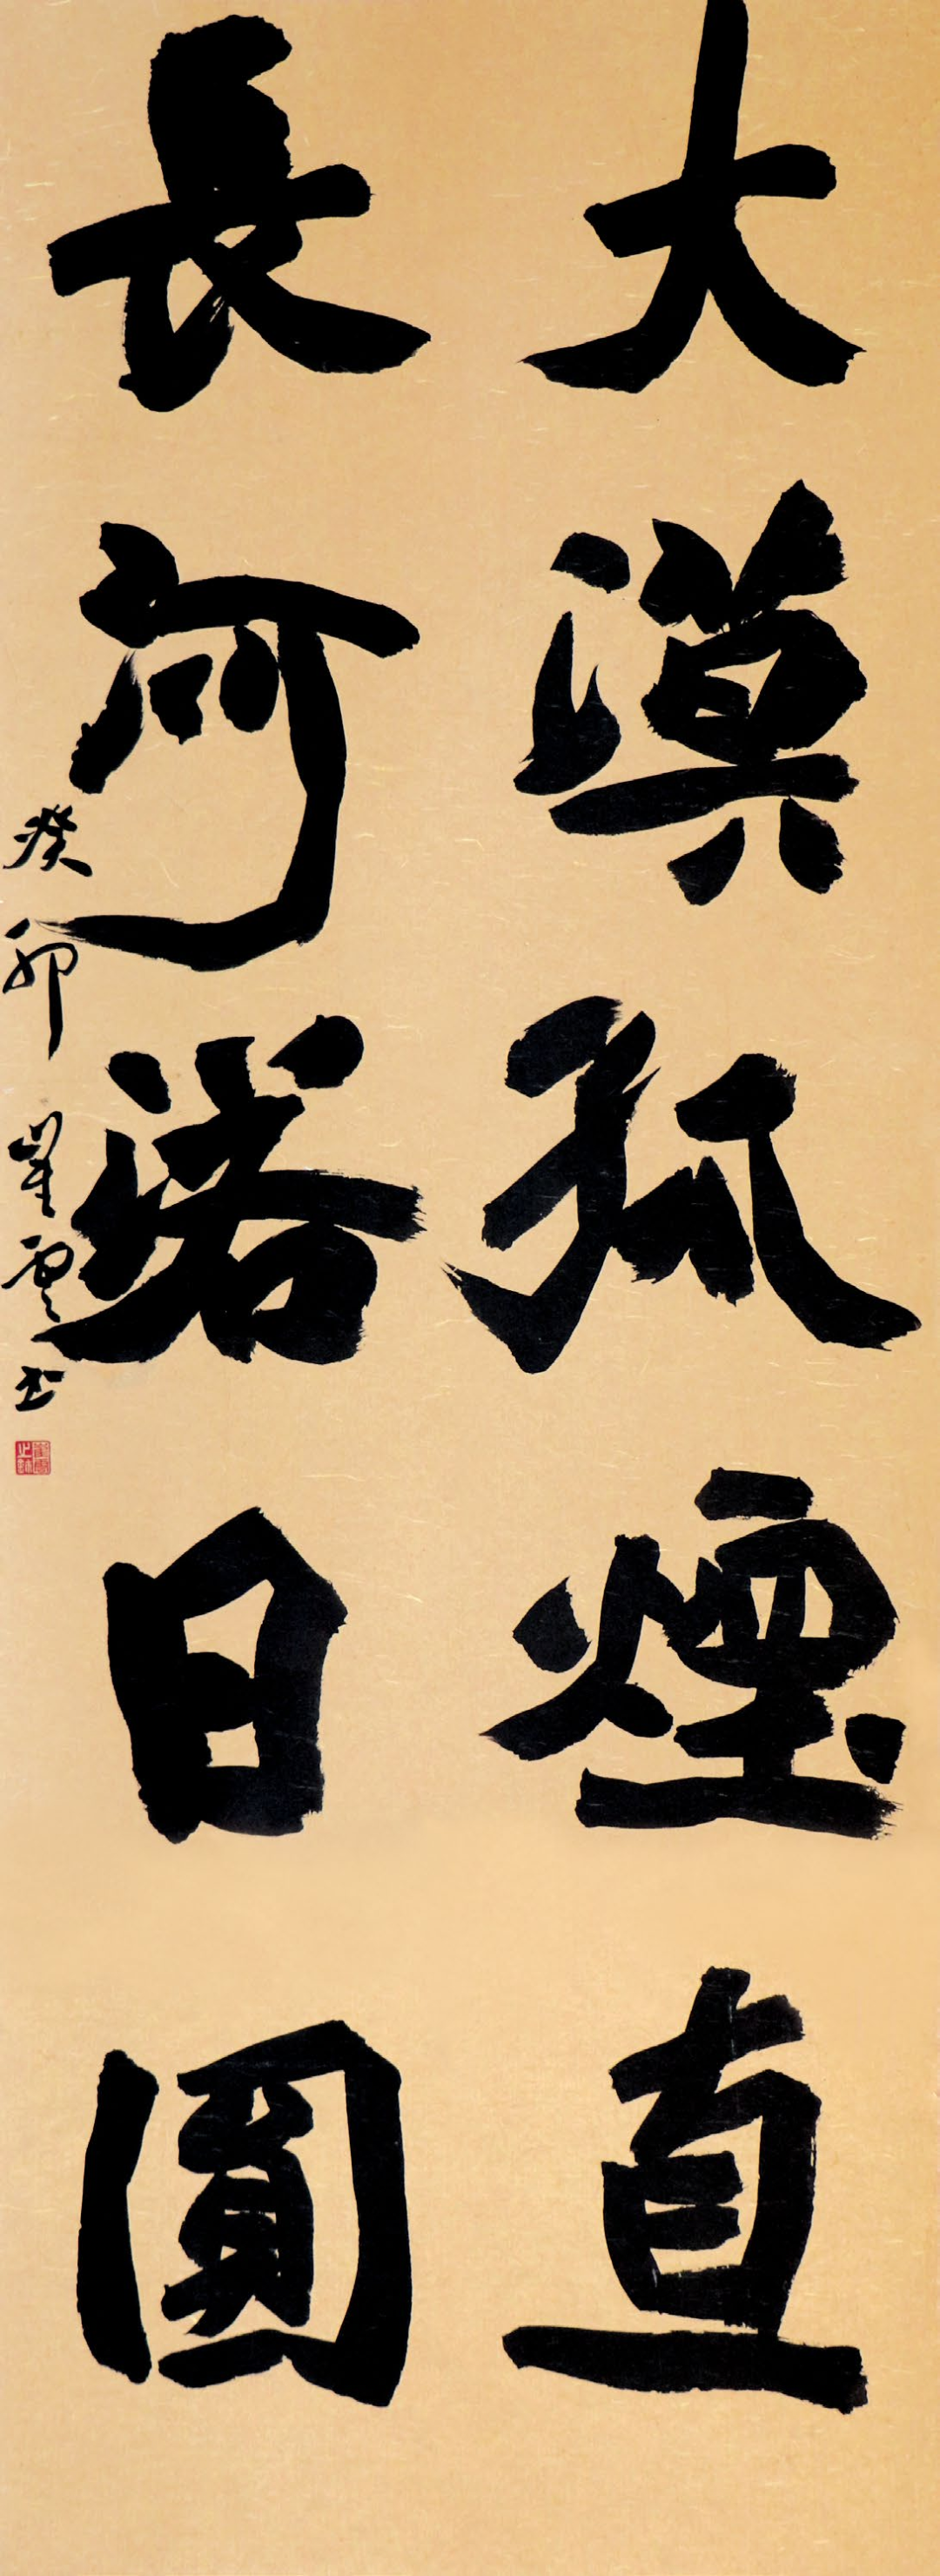 大漠孤煙直
長河落日圓
癸卯崔雲书